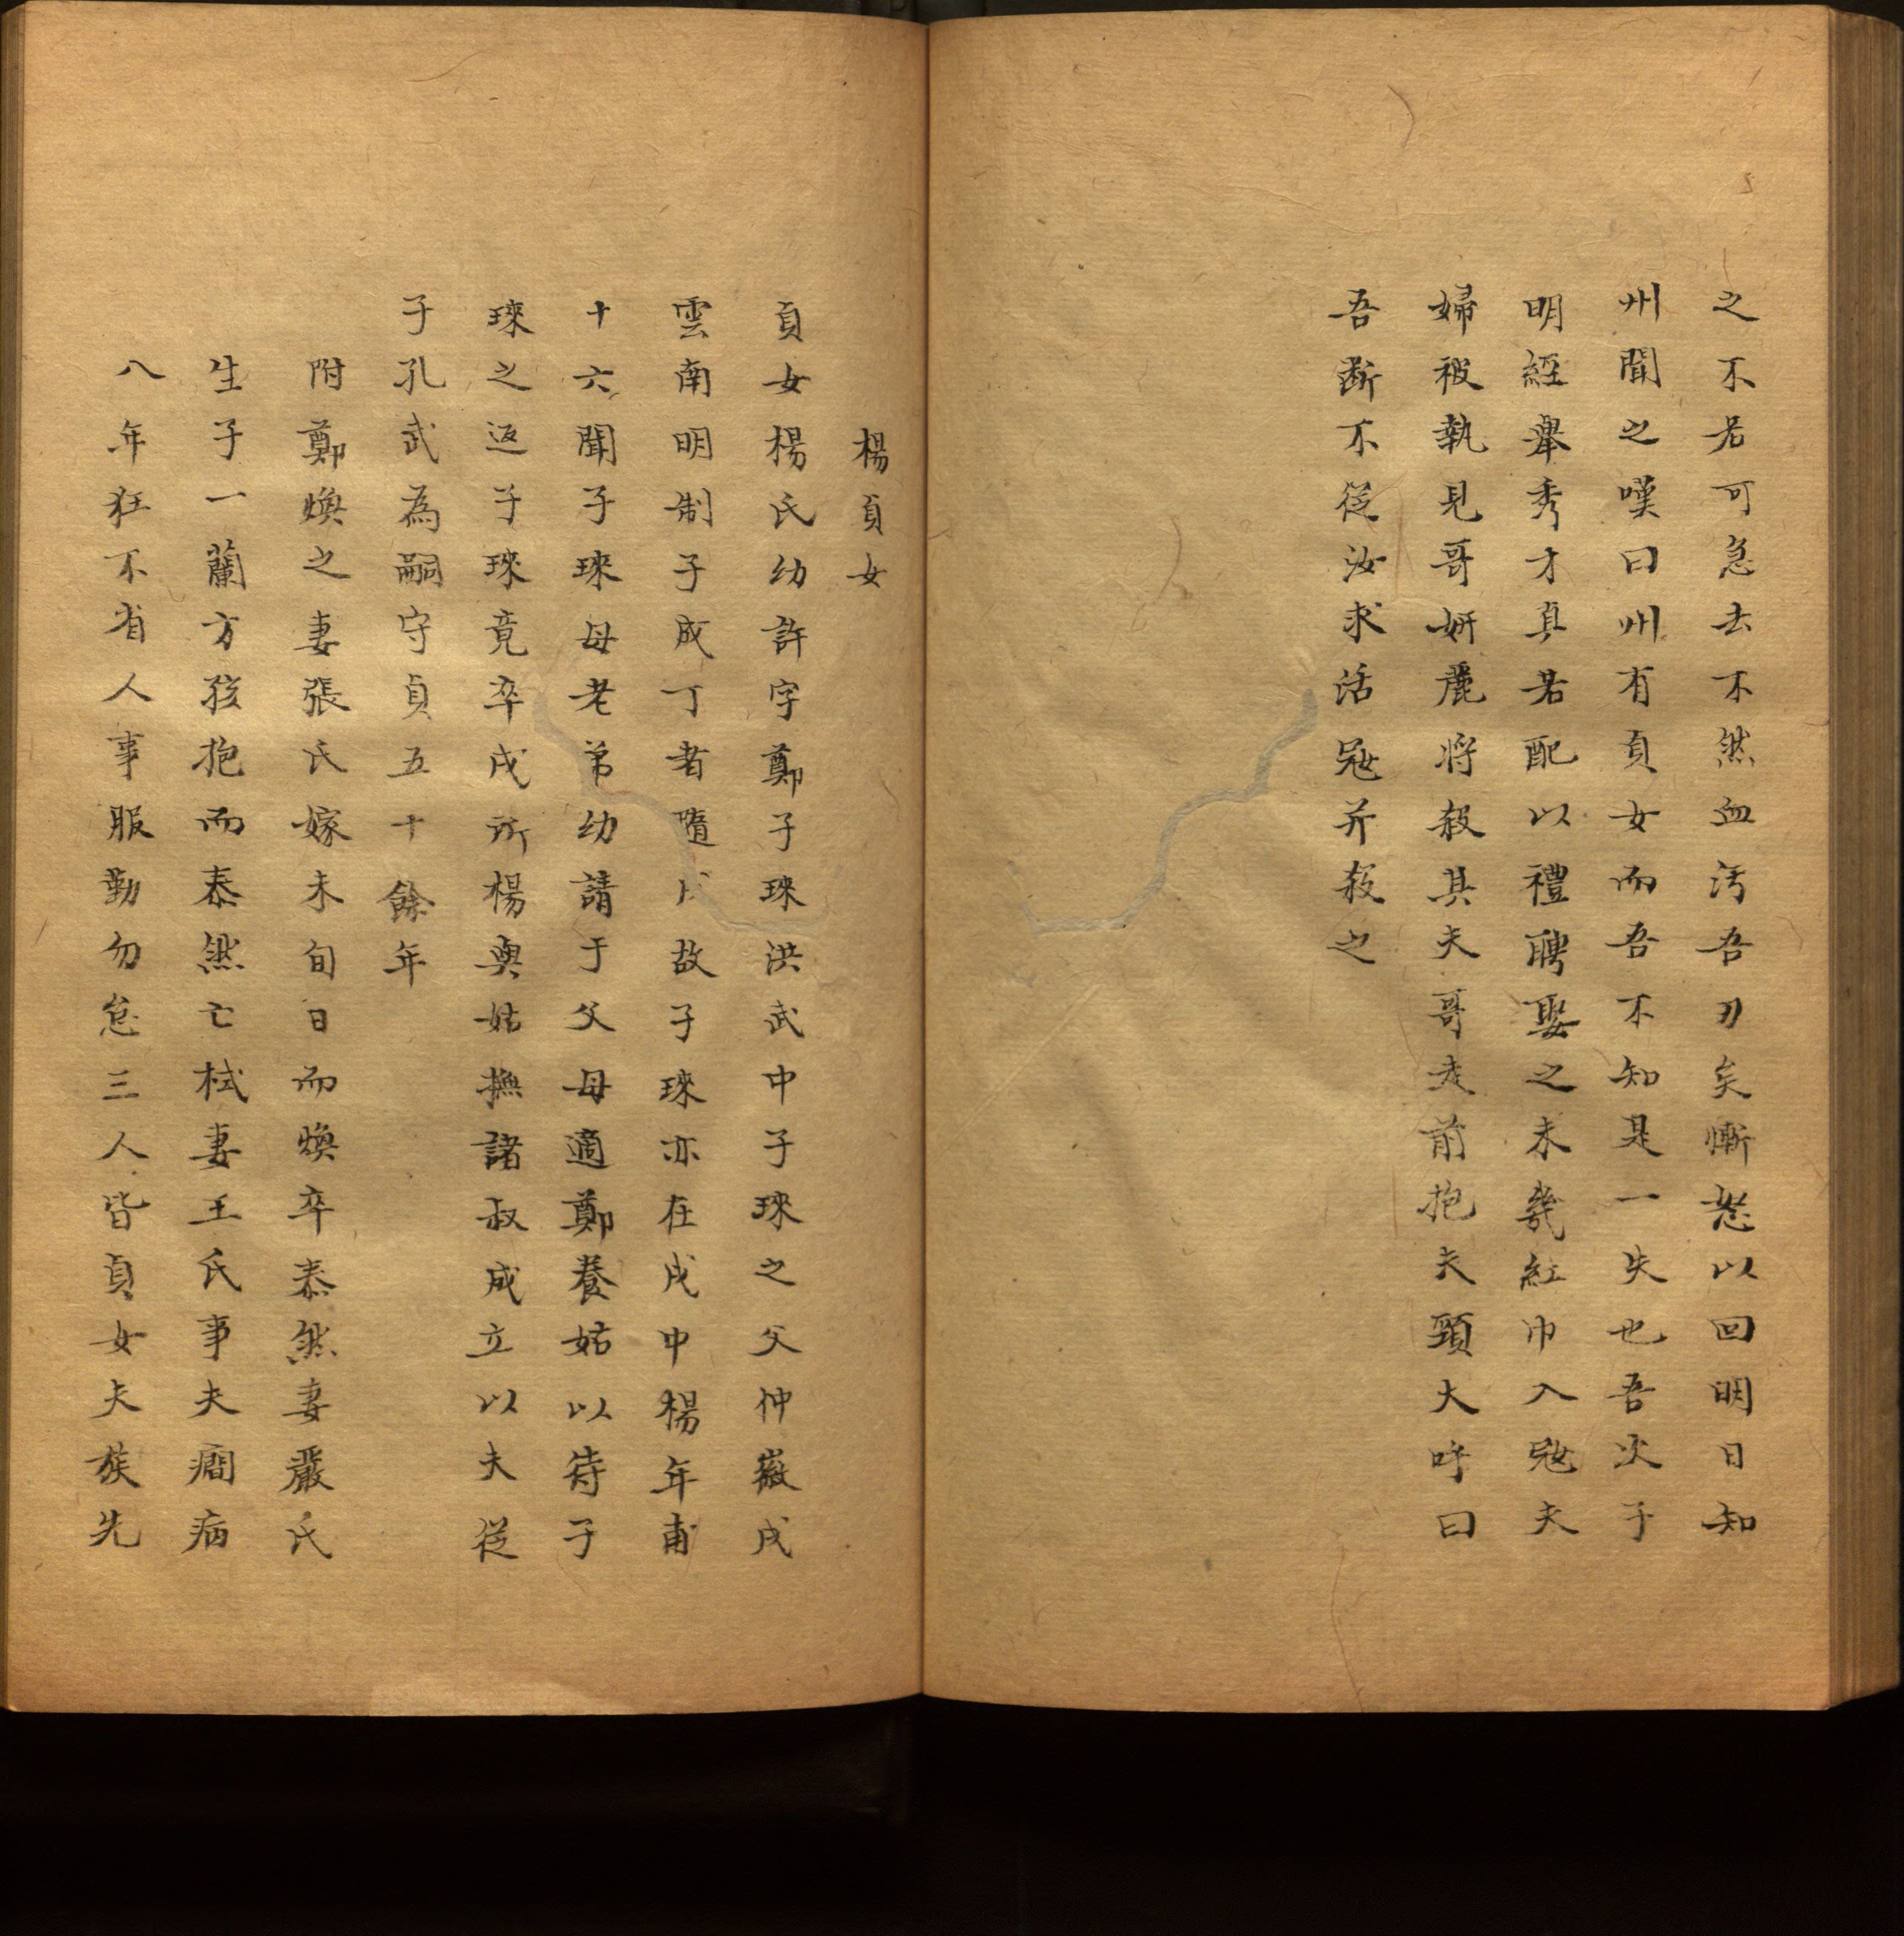 之不若可急去不然血污吾刃矣慚怒以回明日知
州聞之嘆曰州有貞女而吾不知是一失也吾次子
明經舉秀才真若配以禮聘娶之未幾紅巾入寇夫
婦被執見哥妍麗將殺其夫哥走前抱夫頸大呼曰
吾斷不從汝求活寇并殺之
楊貞女
貞女楊氏幼許字鄭子琜洪武中子琜之父仲徽戍
雲南明制子成丁者隨戍故子琜亦在戍中楊年甫
十六聞子琜母老弟幼請于父母適鄭養姑以待子
琜之返子琜竟卒戍所楊與姑撫諸叔成立以夫從
子孔武為嗣守貞五十餘年
附鄭煥之妻張氏嫁未旬日而煥卒泰然妻嚴氏
生子一蘭方孩抱而泰然亡栻妻王氏事夫癎病
八年狂不省人事服勤勿怠三人皆貞女夫族先